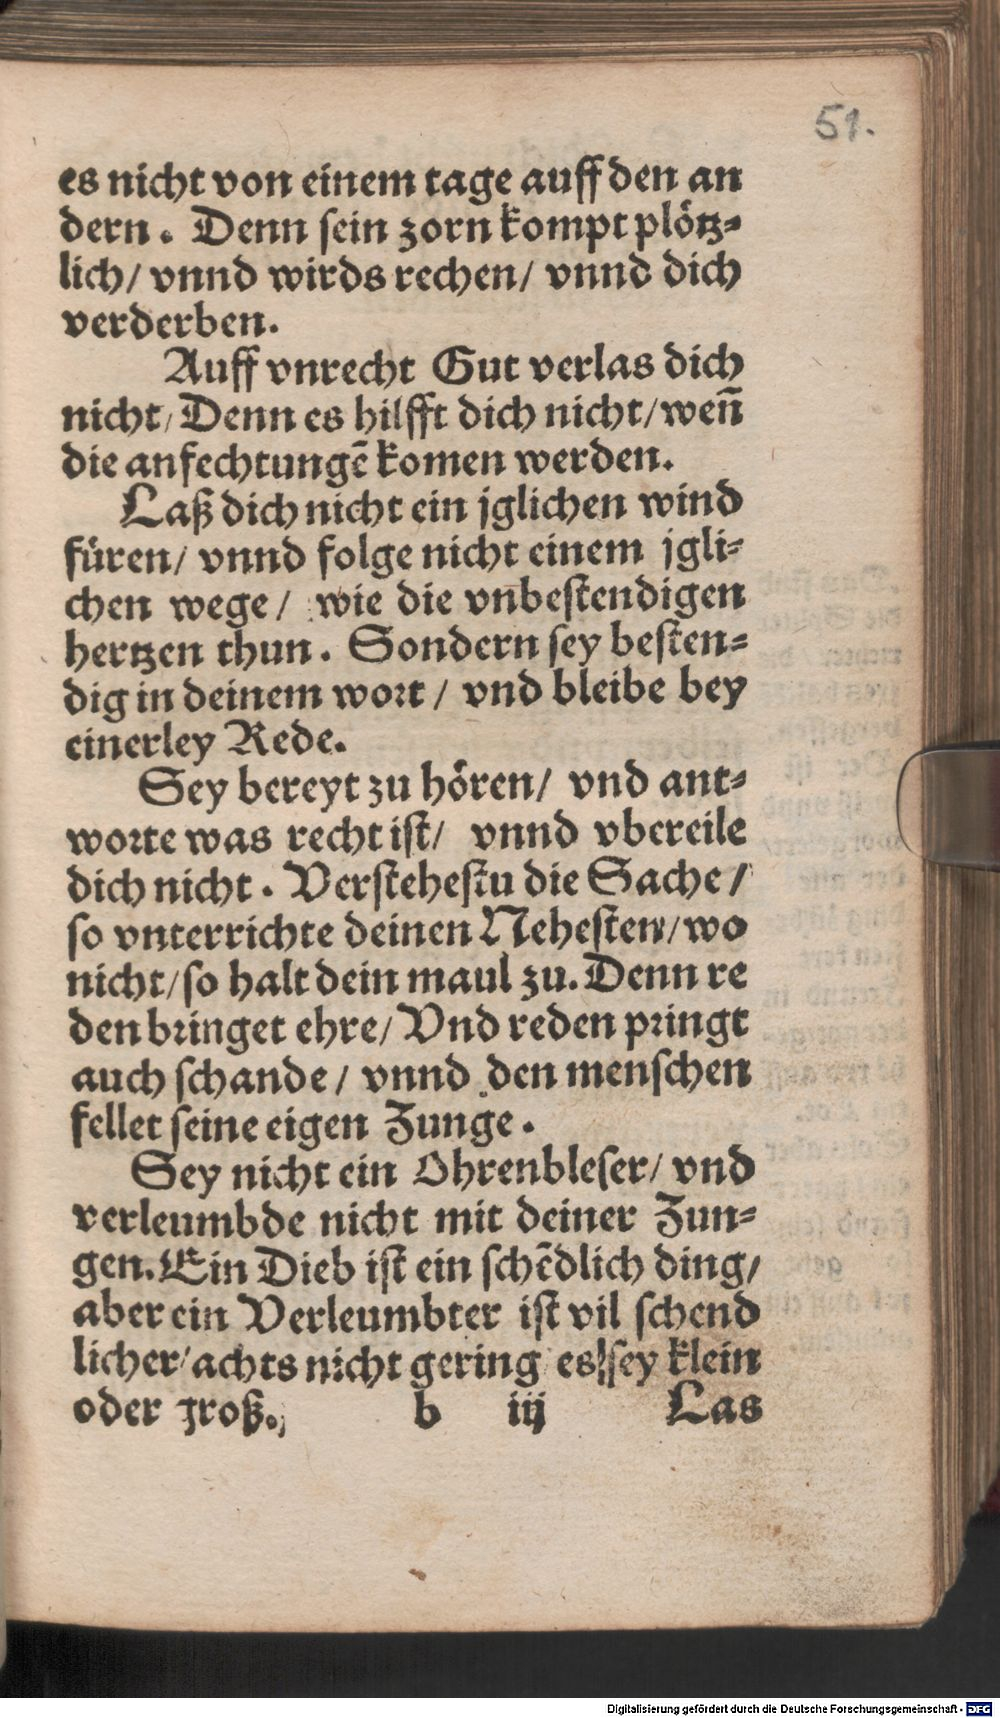 51.
es nicht von einem tage auff den an
dern. Denn sein zorn kompt plötz-
lich/ vnnd wirds rechen/ vnnd dich
verderben.
Auff vnrecht Gut verlas dich
nicht/ Denn es hilfft dich nicht/ weñ
die anfechtungẽ komen werden.
Laß dich nicht ein jglichen wind
füren/ vnnd folge nicht einem jgli-
chen wege/ wie die vnbestendigen
hertzen thun. Sondern sey besten-
dig in deinem wort/ vnd bleibe bey
einerley Rede.
Sey bereyt zu hören/ vnd ant-
worte was recht ist/ vnnd vbereile
dich nicht. Verstehestu die Sache/
so vnterrichte deinen Nehesten/ wo
nicht/ so halt dein maul zu. Denn re
den bringet ehre/ Vnd reden pringt
auch schande/ vnnd den menschen
fellet seine eigen Zunge.
Sey nicht ein Ohrenbleser/ vnd
verleumbde nicht mit deiner Zun-
gen. Ein Dieb ist ein schẽdlich ding/
aber ein Verleumbter ist vil schend
licher/ achts nicht gering es sey klein
oder groß. b iij Las
Digitalisierung gefördert durch die Deutsche Forschungsgemeinschaft - DFG